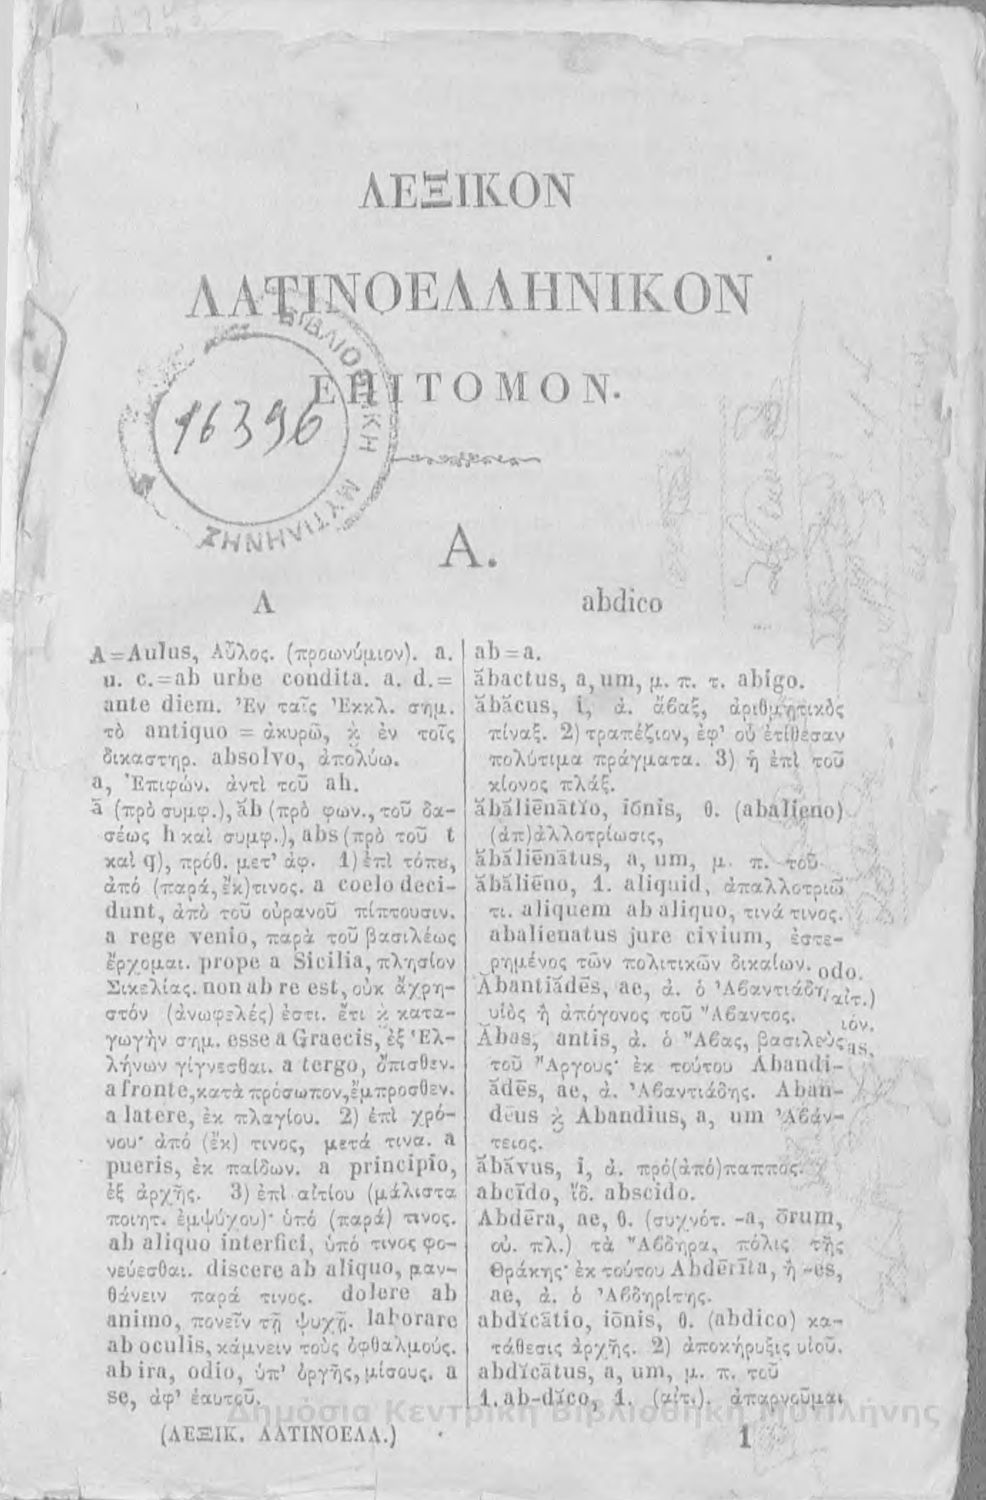 ΛΕΞΙΚΟΝ
ΛΑΤΙΝΟΕΛΛΗΝΙΚΟΝ
ΕΠΙΤΟΜΟΝ.
ΒΙΒΛΙΟΘΗΚΗ ΜΥΤΙΛΗΝΗΣ
16396
Α.
A
abdico
A=Aulus, Αὖλος. (προωνύμιον). a.
u. c.=ab urbe condita. a. d.=
ante diem. Ἐν ταῖς Ἐκκλ. σημ.
τὸ antiquo = ἀκυρῶ, ϗ ἐν τοῖς
δικαστηρ. absolvo, ἀπολύω.
a, Ἐπιφών. ἀντὶ τοῦ ah.
ā (πρὸ συμφ.), ăb (πρὸ φων., τοῦ δα-
σέως h καὶ συμφ.), abs (πρὸ τοῦ t
καὶ q), πρόθ. μετ' ἀφ. 1) ἐπὶ τόπȣ,
ἀπό (παρά, ἐκ) τινος. a coelo deci-
dunt, ἀπὸ τοῦ οὐρανοῦ πίπτουσιν.
a rege venio, παρὰ τοῦ βασιλέως
ἔρχομαι. prope a Sicilia, πλησίον
Σικελίας. non ab re est, οὐκ ἄχρη-
στόν (ἀνωφελές) ἐστι. ἔτι ϗ κατα-
γωγὴν σημ. esse a Graecis, ἐξ Ἑλ-
λήνων γίγνεσθαι. a tergo, ὄπισθεν.
a fronte, κατὰ πρόσωπον, ἔμπροσθεν.
a latere, ἐκ πλαγίου. 2) ἐπὶ χρό-
νου· ἀπό (ἐκ) τινος, μετά τινα. a
pueris, ἐκ παίδων. a principio,
ἐξ ἀρχῆς. 3) ἐπὶ αἰτίου (μάλιστα
ποιητ. ἐμψύχου)· ὑπό (παρά) τινος.
ab aliquo interfici, ὑπό τινος φο-
νεύεσθαι. discere ab aliquo, μαν-
θάνειν παρά τινος. dolere ab
animo, πονεῖν τῇ ψυχῇ. laborare
ab oculis, κάμνειν τοὺς ὀφθαλμούς.
ab ira, odio, ὑπ' ὀργῆς, μίσους. a
se, ἀφ' ἑαυτοῦ.
ab=a.
ăbactus, a, um, μ. π. τ. abigo.
ăbăcus, i, ἀ. ἄβαξ, ἀριθμητικὸς
πίναξ. 2) τραπέζιον, ἐφ' οὗ ἐτίθεσαν
πολύτιμα πράγματα. 3) ἡ ἐπὶ τοῦ
κίονος πλάξ.
ăbălĭēnātĭo, iōnis, θ. (abalieno)
(ἀπ)αλλοτρίωσις,
ăbălĭēnātus, a, um, μ. π. τοῦ
ăbălĭēno, 1. aliquid, ἀπαλλοτριῶ
τι. aliquem ab aliquo, τινά τινος.
abalienatus jure civium, ἐστε-
ρημένος τῶν πολιτικῶν δικαίων.
Abantĭădēs, ae, ἀ. ὁ Ἀβαντιάδης
υἱὸς ἢ ἀπόγονος τοῦ Ἄβαντος.
Ăbas, antis, ἀ. ὁ Ἄβας, βασιλεὺς
τοῦ Ἄργους· ἐκ τούτου Abandi-
ădēs, ae, ἀ. Ἀβαντιάδης. Aban-
dēus ϗ Abandius, a, um Ἀβάν-
τειος.
ăbăvus, i, ἀ. πρό(ἀπό)παππος.
abcīdo, ἴδ. abscido.
Abdēra, ae, θ. (συχνότ. -a, ōrum,
οὐ. πλ.) τὰ Ἄβδηρα, πόλις τῆς
Θράκης· ἐκ τούτου Abdērīta, ἢ -es,
ae, ἀ. ὁ Ἀβδηρίτης.
abdĭcātio, iōnis, θ. (abdico) κα-
τάθεσις ἀρχῆς. 2) ἀποκήρυξις υἱοῦ.
abdĭcātus, a, um, μ. π. τοῦ
1. ab-dĭco, 1. (αἰτ.). ἀπαρνοῦμαι
odo.
αἰτ.)
ιόν.
as.
Δημόσια Κεντρική Βιβλιοθήκη Μυτιλήνης
(ΛΕΞΙΚ. ΛΑΤΙΝΟΕΛΛ.)
1